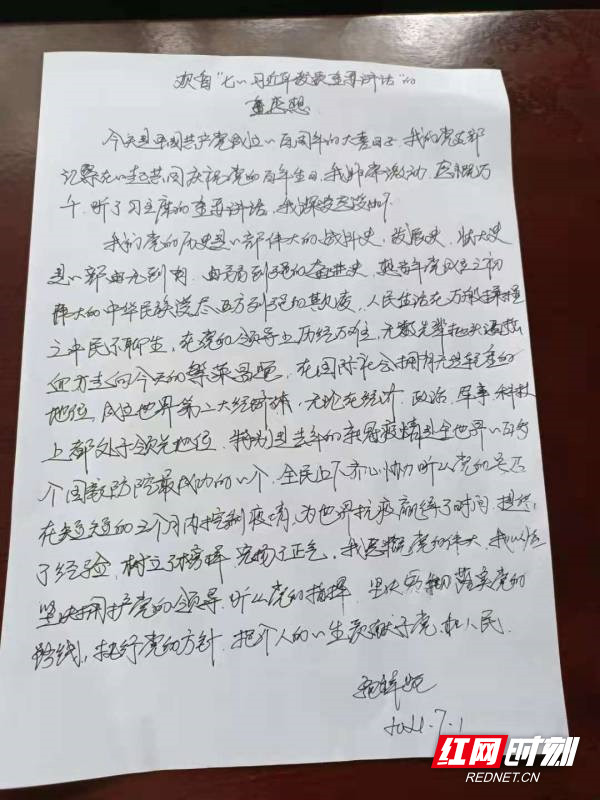 观看"七一习近平发表重要讲话"的
重感想
今天是中国共产党成立一百周年的大喜日子,我们党支部
记录在一起共同庆祝党的百年生日,我非常激动,
千,听了习主席的重要讲话,我深受
我们党的历史是一部伟大的战斗史,发展史,壮大史
是一部由无到有,由弱到强的奋进史,想当年党成立之初
伟大的中华民族
之中民不聊生,在党的领导下历经万难,无数先辈抛头洒热
血方走向今天的繁荣昌盛,在国际社会拥有举足轻重的
地位,成为世界第二大经济体,无论在经济,政治,军事,科技
上都处于领先地位,特别是去年的新冠疫情是全世界一百多
个国家防控最成功的一个,全民上下齐心协力听从党的号召
在短短的三个月内控制疫情,为世界抗疫赢得了时间,提供
了经验,树立了榜样,了正气,我感谢党的伟大,我
坚决拥护党的领导,听从党的指挥,坚决贯彻落实党的
路线,执行党的方针,把个人的一生贡献于党和人民.
2021.7.1
红网时刻
REDNET.CN